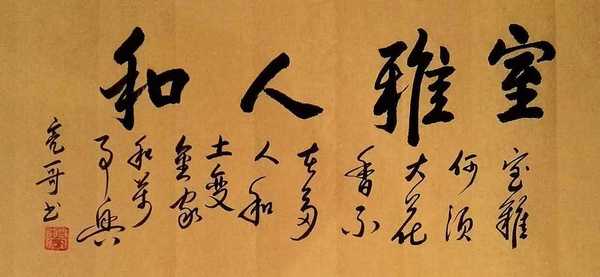 室雅人和
室雅
何须
大花
香不
在多
人和
土變
金家
和萬
事興
亮哥书